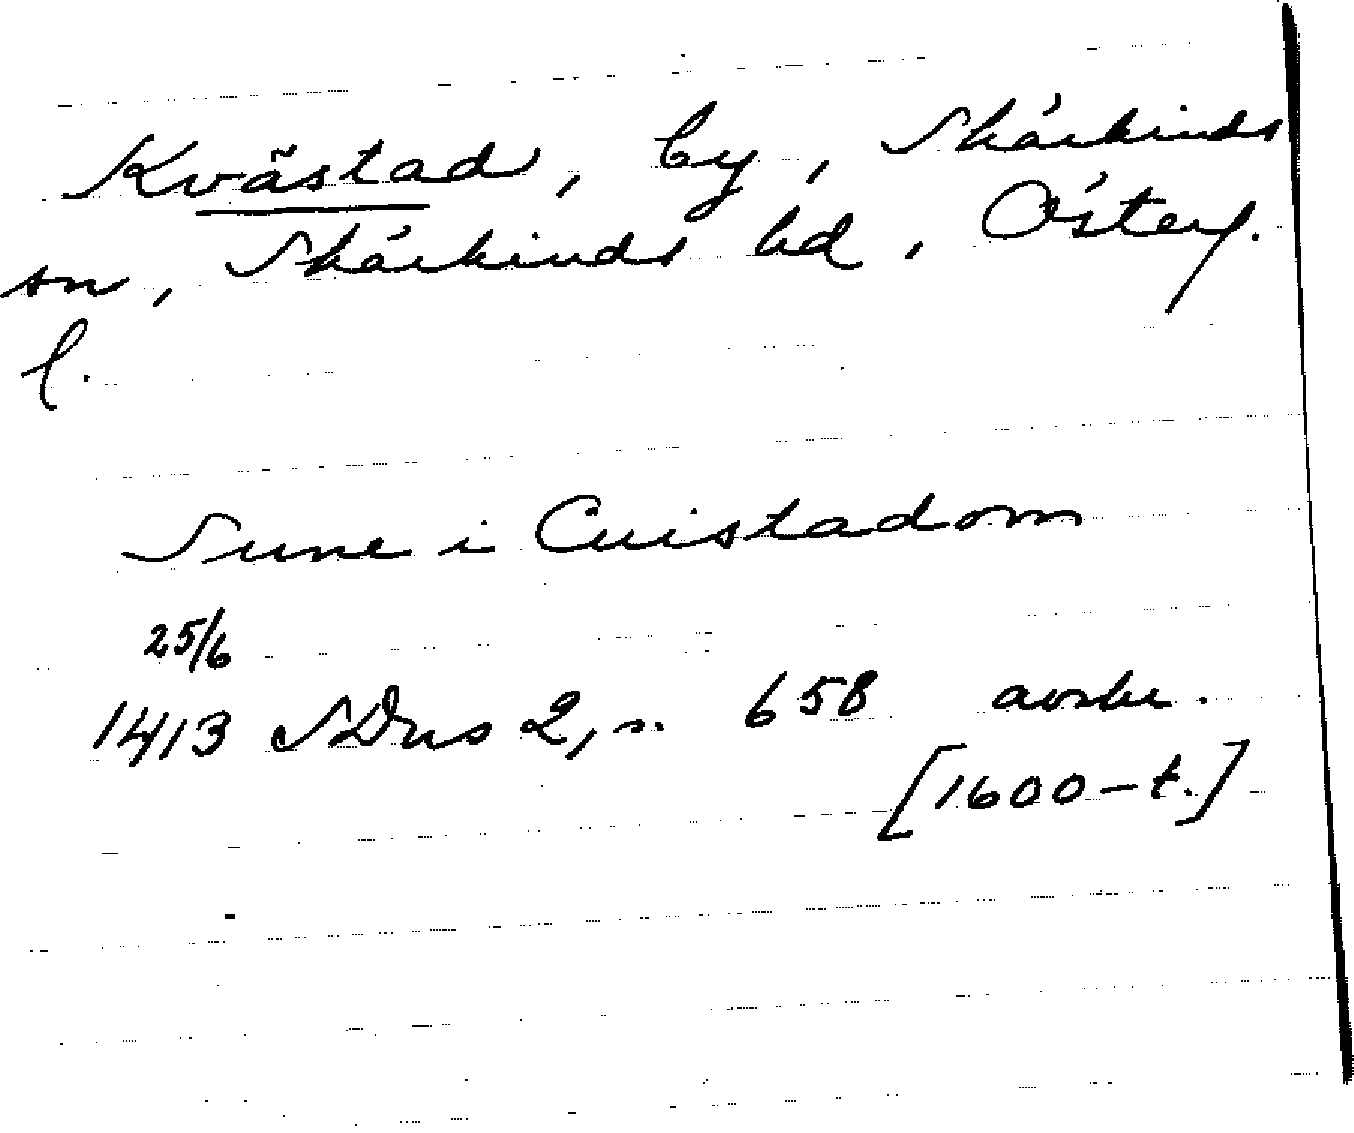 Kvästad, by, Skärkinds
sn, Skärkinds hd, Österg.
l.
Sune i Cuistadom
25/6
1413 SDns 2, s. 658 avskr.
[1600-t.]